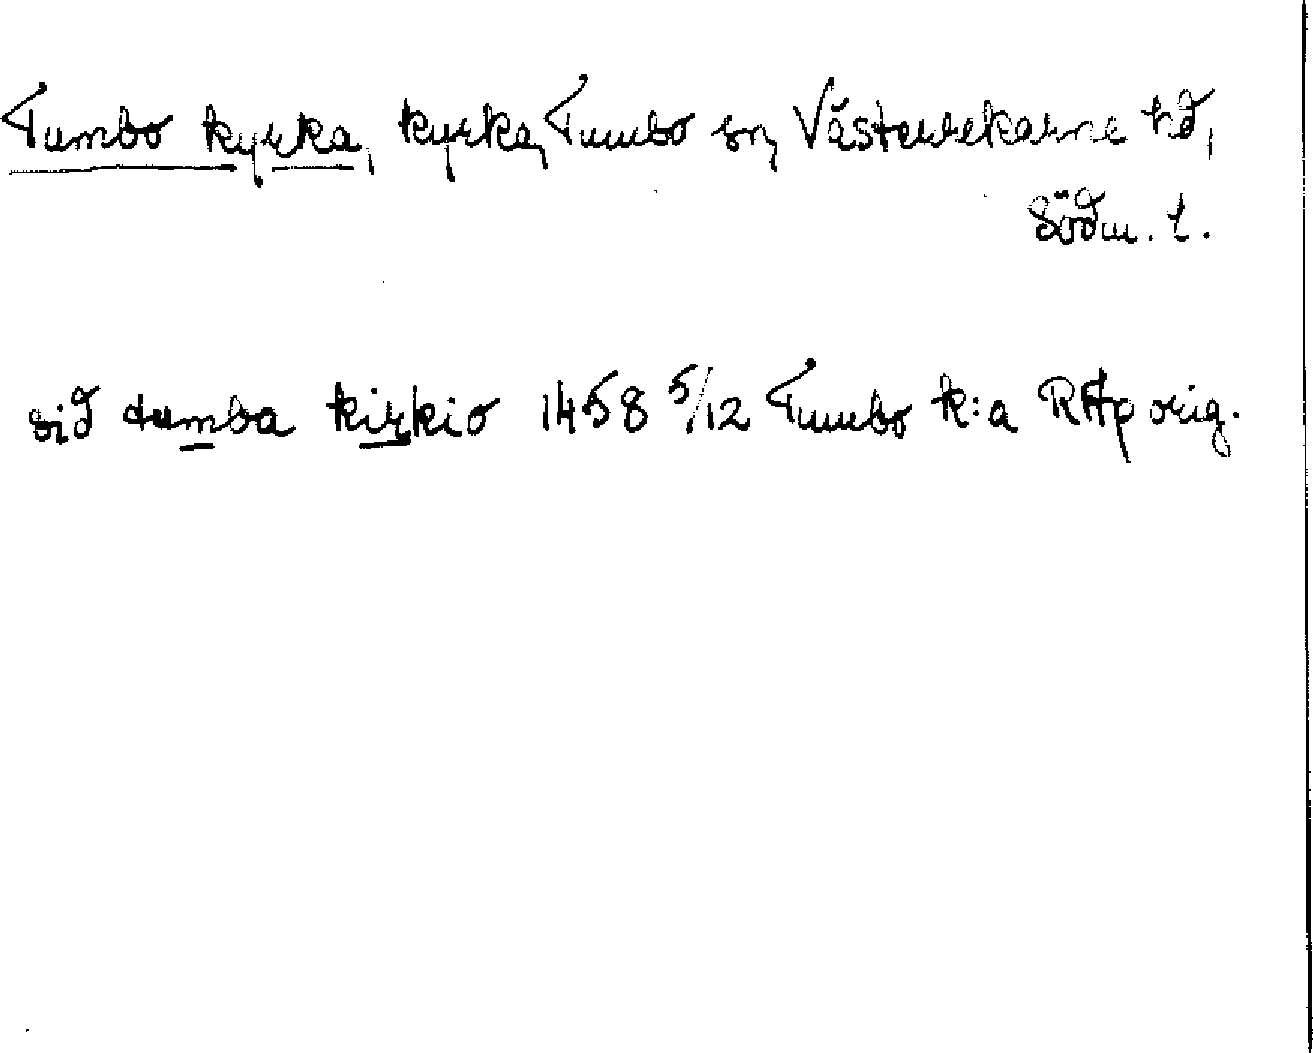 Tumbo kyrka, kyrka, Tumbo sn, Västerrekarne hd,
Södm. l.
vid tumba kirkio 1458 5/12 Tumbo k:a RAp orig.